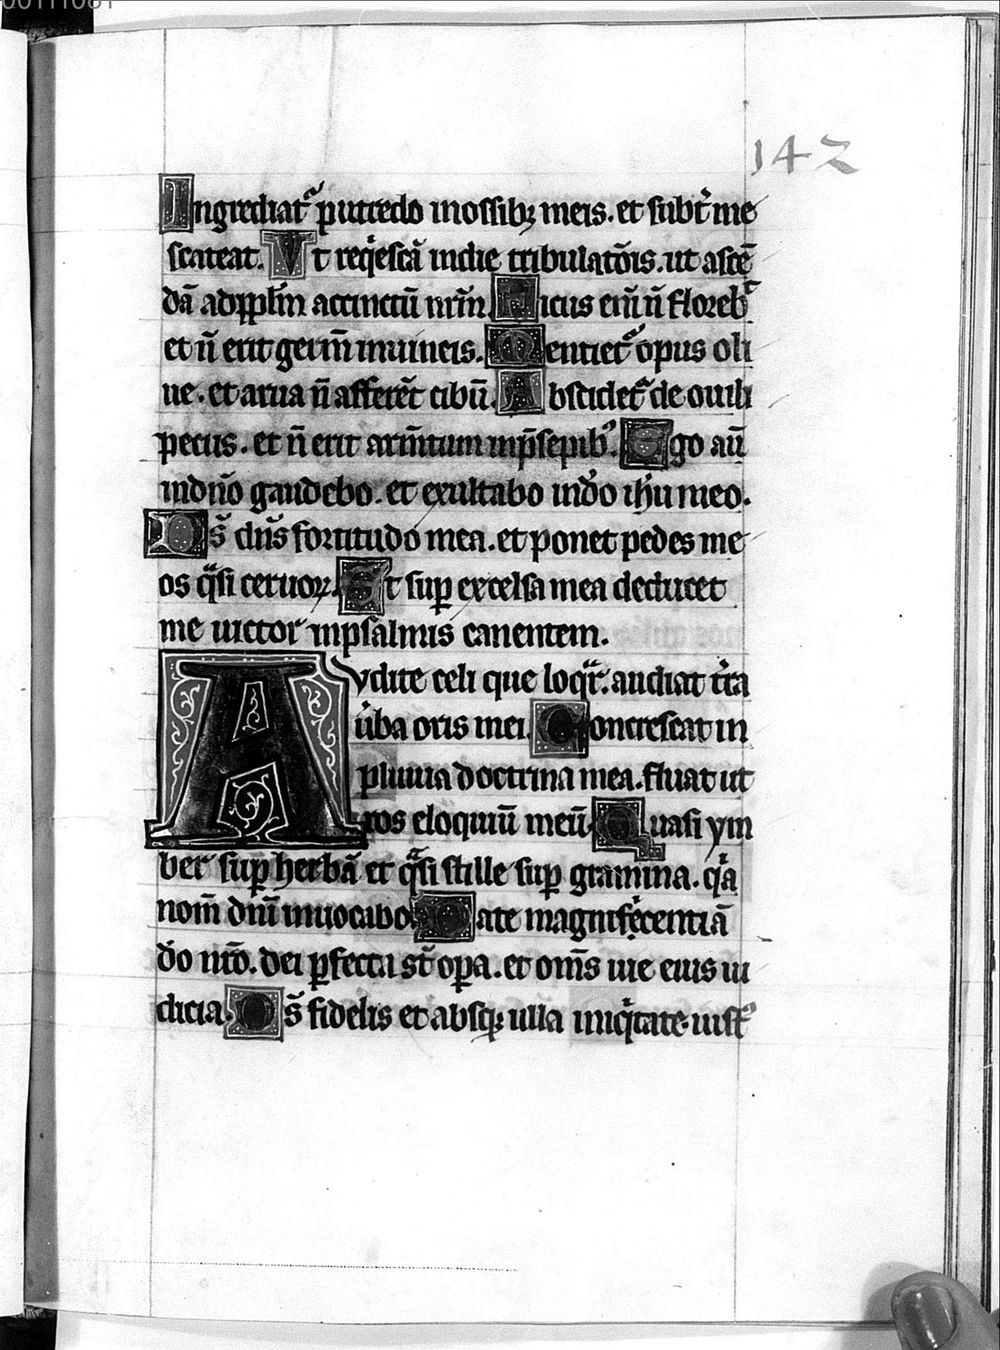 00111081
142
Ingrediat᷑ putredo inossibꝫ meis. et subt̾ me
scateat. Vt reqͥescā indie tribulatōis. ut ascē
dā adpplm̄ accinctū nr̄m. Ficus eni̅ n̄ floreb᷑
et n̄ erit germ̄ inuineis. Mentiet᷑ opus oli
ue. et arua n̄ afferēt cibū. Abscidet᷑ de ouili
pecus. et n̄ erit arm̄tum inp̄sepibꝰ. Ego aū
indn̄o gaudebo. et exultabo indo̅ ih̅u meo.
Ds̄ dn̄s fortitudo mea. et ponet pedes me
os qᷓsi ceruoꝝ. Et suꝑ excelsa mea deducet
me uictor inpsalmis canentem.
Avdite celi que loqᷓr. audiat t̾ra
u̾ba oris mei. Concrescat in
pluuia doctrina mea. fluat ut
ros eloquiū meū. Quasi ym
ber suꝑ herbā et qᷓsi stille suꝑ gramina. qͥa
nom̄ dn̄i inuocabo. Date magnificentiā
do̅ nr̄o. dei ꝑfecta st̄ oꝑa. et om̄s uie eius iu
dicia. Ds̄ fidelis et absqꝫ ulla iniqͥtate iustꝰ